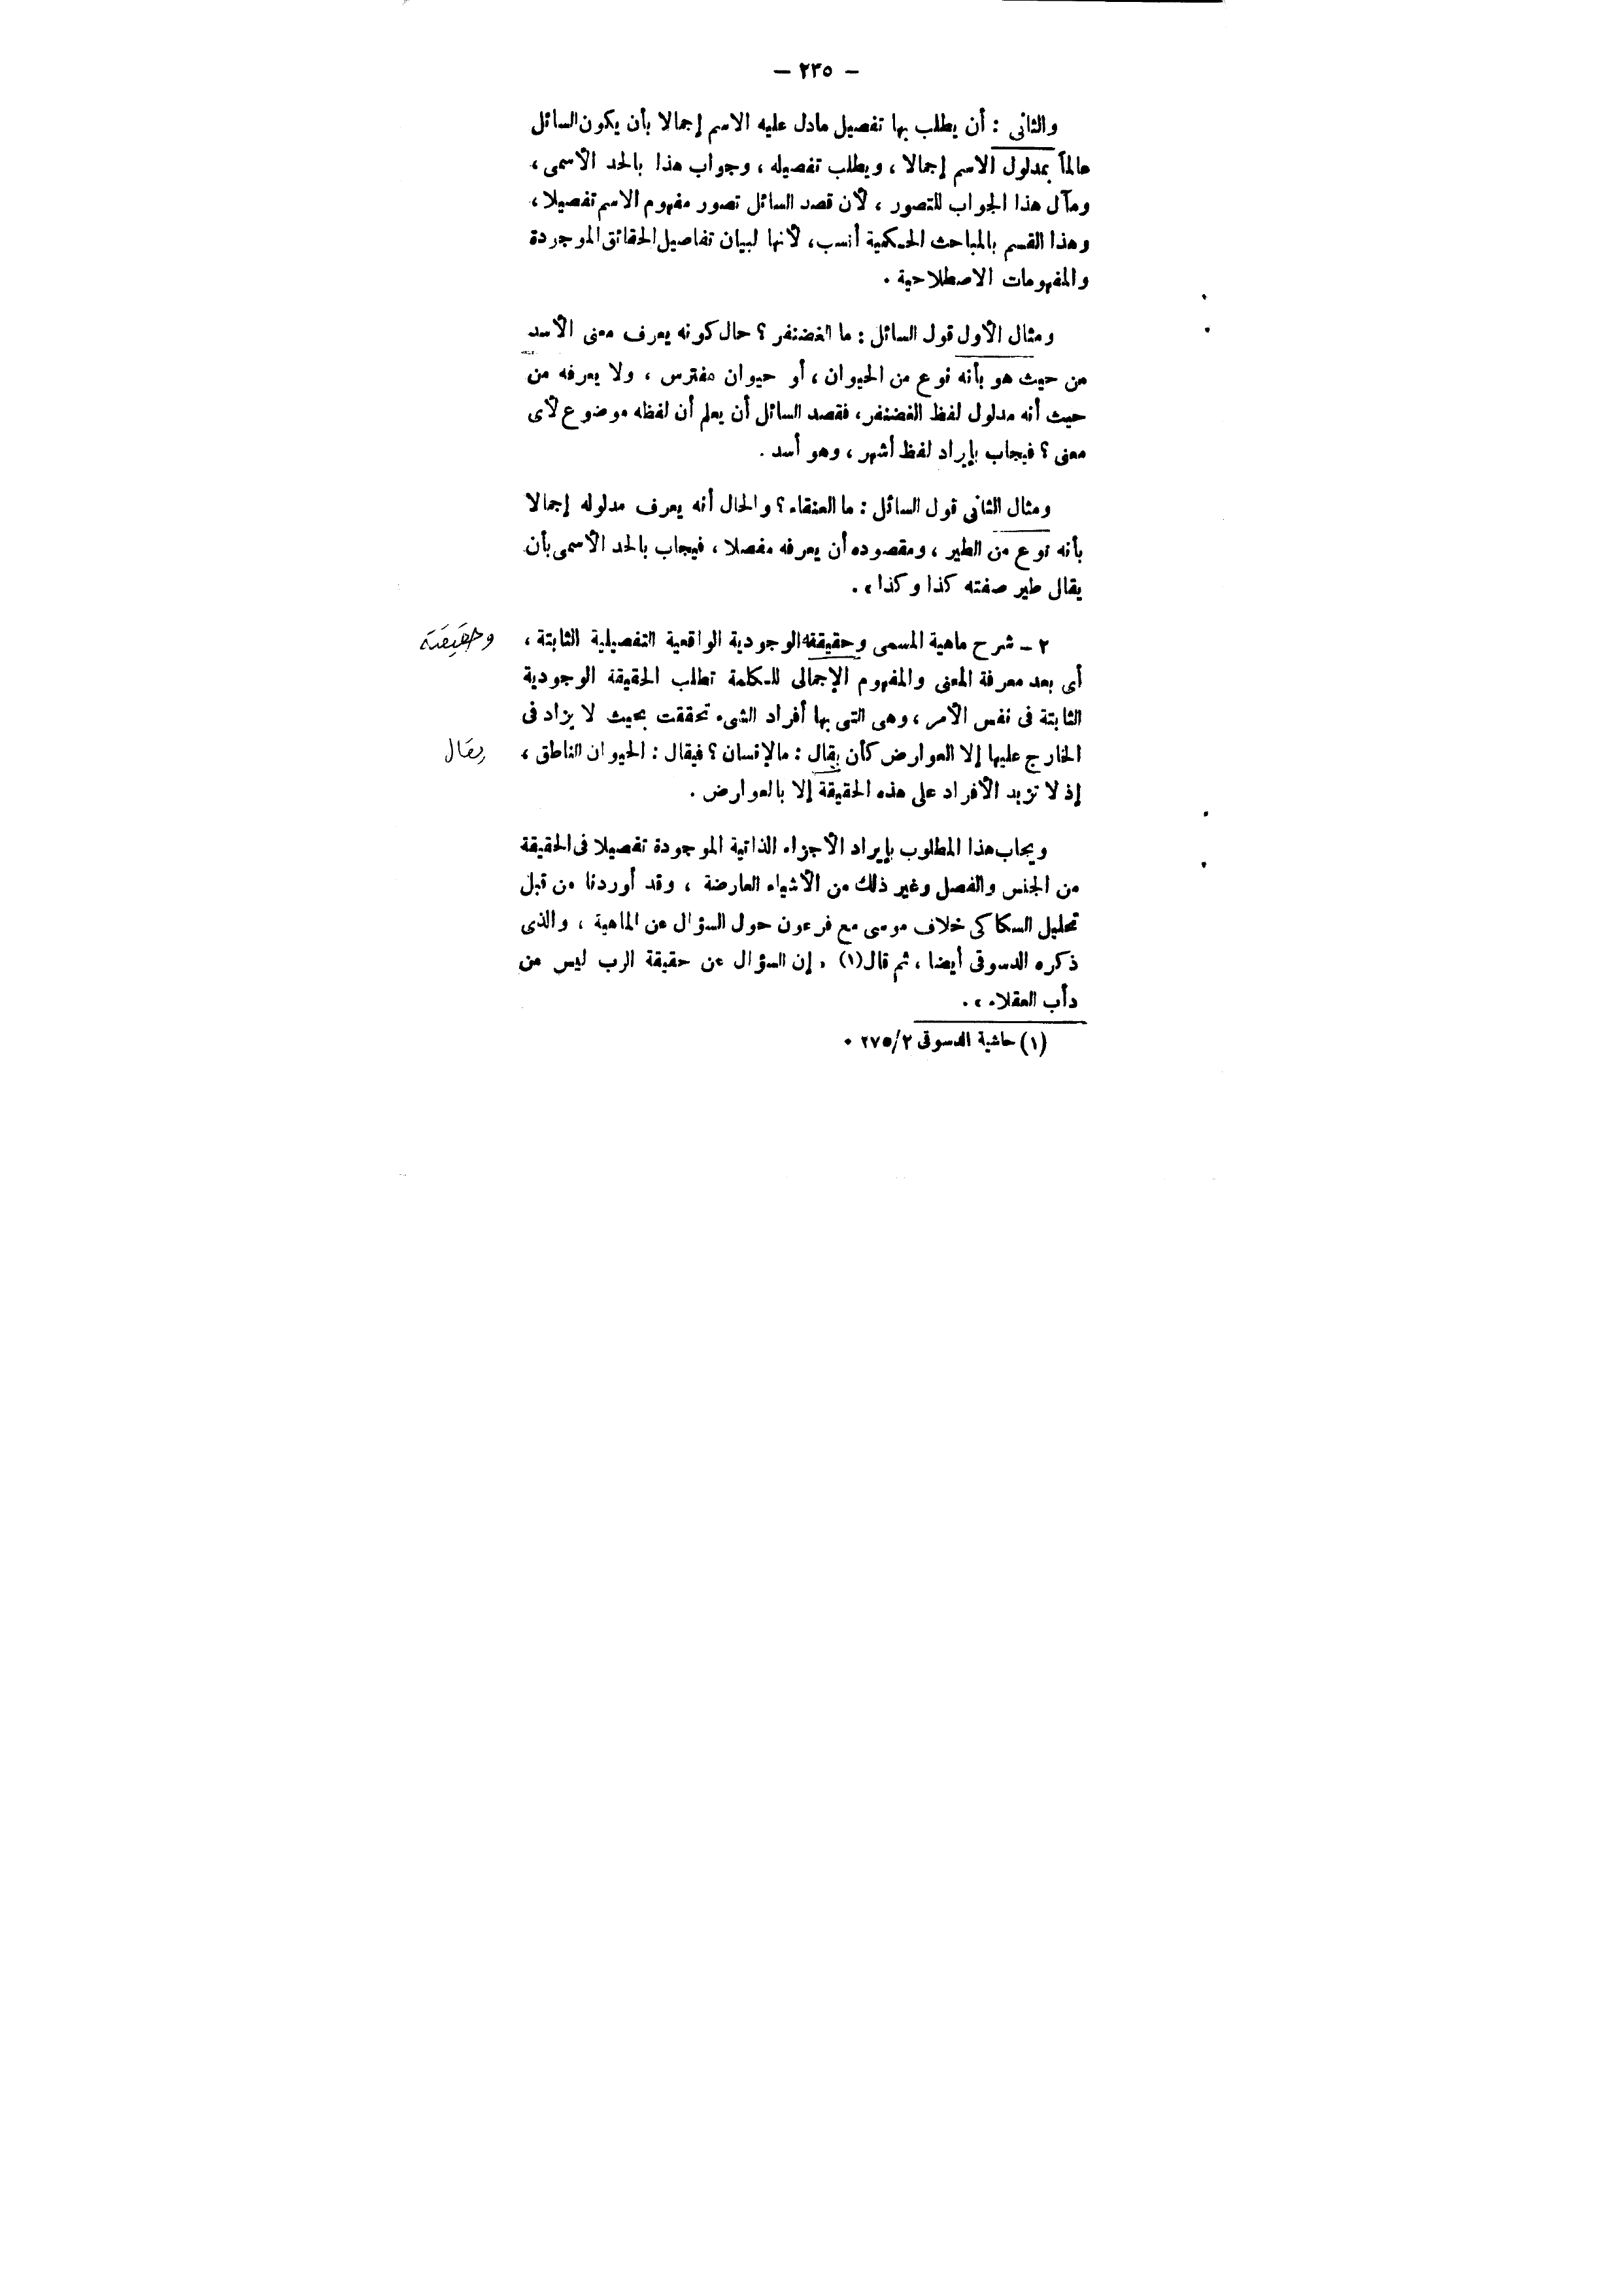 — ٢٣٥ —
والثانى : أن يطلب بها تفصيل مادل عليه الاسم إجمالا بأن يكون السائل
عالماً بمدلول الاسم إجمالا ، ويطلب تفصيله ، وجواب هذا بالحد الأسمى ،
ومآل هذا الجواب للتصور ، لأن قصد السائل تصور مفهوم الاسم تفصيلا ،
وهذا القسم بالمباحث الحكمية أنسب ، لأنها لبيان تفاصيل الحقائق الموجردة
والمفهومات الاصطلاحية .
ومثال الأول قول السائل : ما الغضنفر ؟ حال كونه يعرف معنى الأسد
من حيث هو بأنه نوع من الحيوان ، أو حيوان مفترس ، ولا يعرفه من
حيث أنه مدلول لفظ الغضنفر ، فقصد السائل أن يعلم أن لفظه موضوع لأى
معنى ؟ فيجاب بإيراد لفظ أشهر ، وهو أسد .
ومثال الثانى قول السائل : ما العنقاء ؟ والحال أنه يعرف مدلوله إجمالا
بأنه نوع من الطير ، ومقصوده أن يعرفه مفصلا ، فيجاب بالحد الأسمى بأن
يقال طير صفته كذا وكذا » .
٢ – شرح ماهية المسمى وحقيقته الوجودية الواقعية التفصيلية الثابتة ، وحقيقته
أى بعد معرفة المعنى والمفهوم الإجمالى للكلمة تطلب الحقيقة الوجودية
الثابتة فى نفس الأمر ، وهى التى بها أفراد الشىء تحققت بحيث لا يزاد فى
الخارج عليها إلا العوارض كأن يقال : مالإنسان ؟ فيقال : الحيوان الناطق ، يقال
إذ لا تزيد الأفراد على هذه الحقيقة إلا بالعوارض .
ويجاب هذا المطلوب بإيراد الأجزاء الذاتية الموجودة تفصيلا فى الحقيقة
من الجنس والفصل وغير ذلك من الأشياء العارضة ، وقد أوردنا من قبل
تحليل السكاكى خلاف موسى مع فرعون حول السؤال عن الماهية ، والذى
ذكره الدسوقى أيضا ، ثم قال(١) « إن السؤال عن حقيقة الرب ليس من
دأب العقلاء » .
(١) حاشية الدسوقى ٢/‏٢٧٥ .